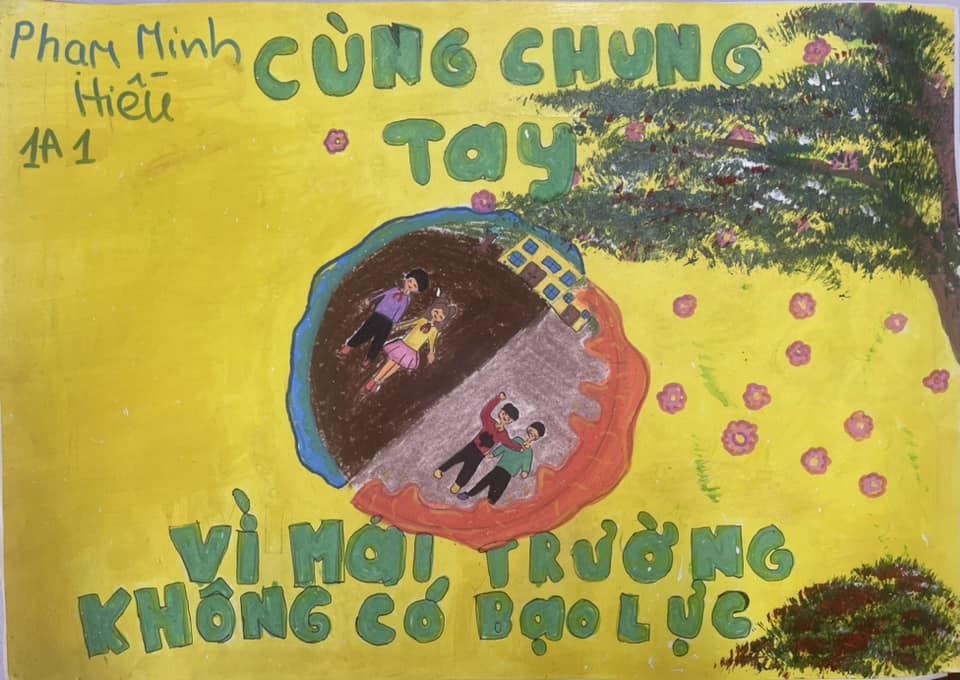 Phạm Minh
Hiếu
1A1
CÙNG CHUNG
Tay
VÌ MÁI TRƯỜNG
KHÔNG CÓ BẠO LỰC